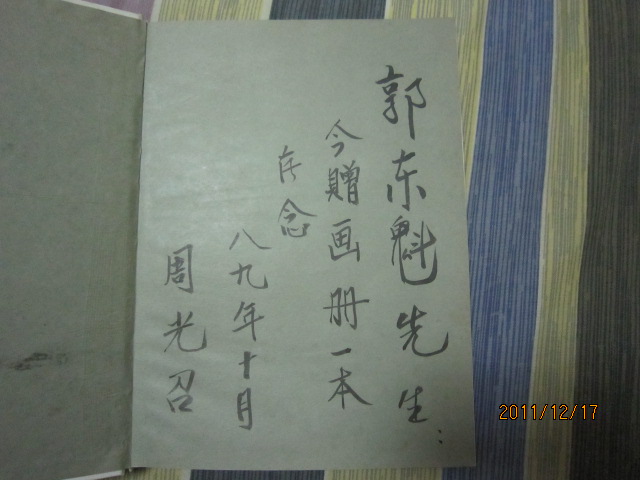 郭东魁先生：
今赠画册一本
存念
八九年十月
周光召
2011/12/17